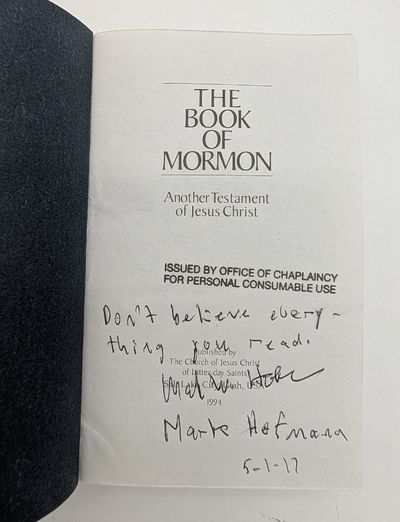 THE
BOOK
OF
MORMON
Another Testament
of Jesus Christ
ISSUED BY OFFICE OF CHAPLAINCY
FOR PERSONAL CONSUMABLE USE
Don't believe every-
thing you read.
Published by
The Church of Jesus Christ
of Latter-day Saints
Salt Lake City, Utah, USA
1994
Mark Hofmann
5-1-17